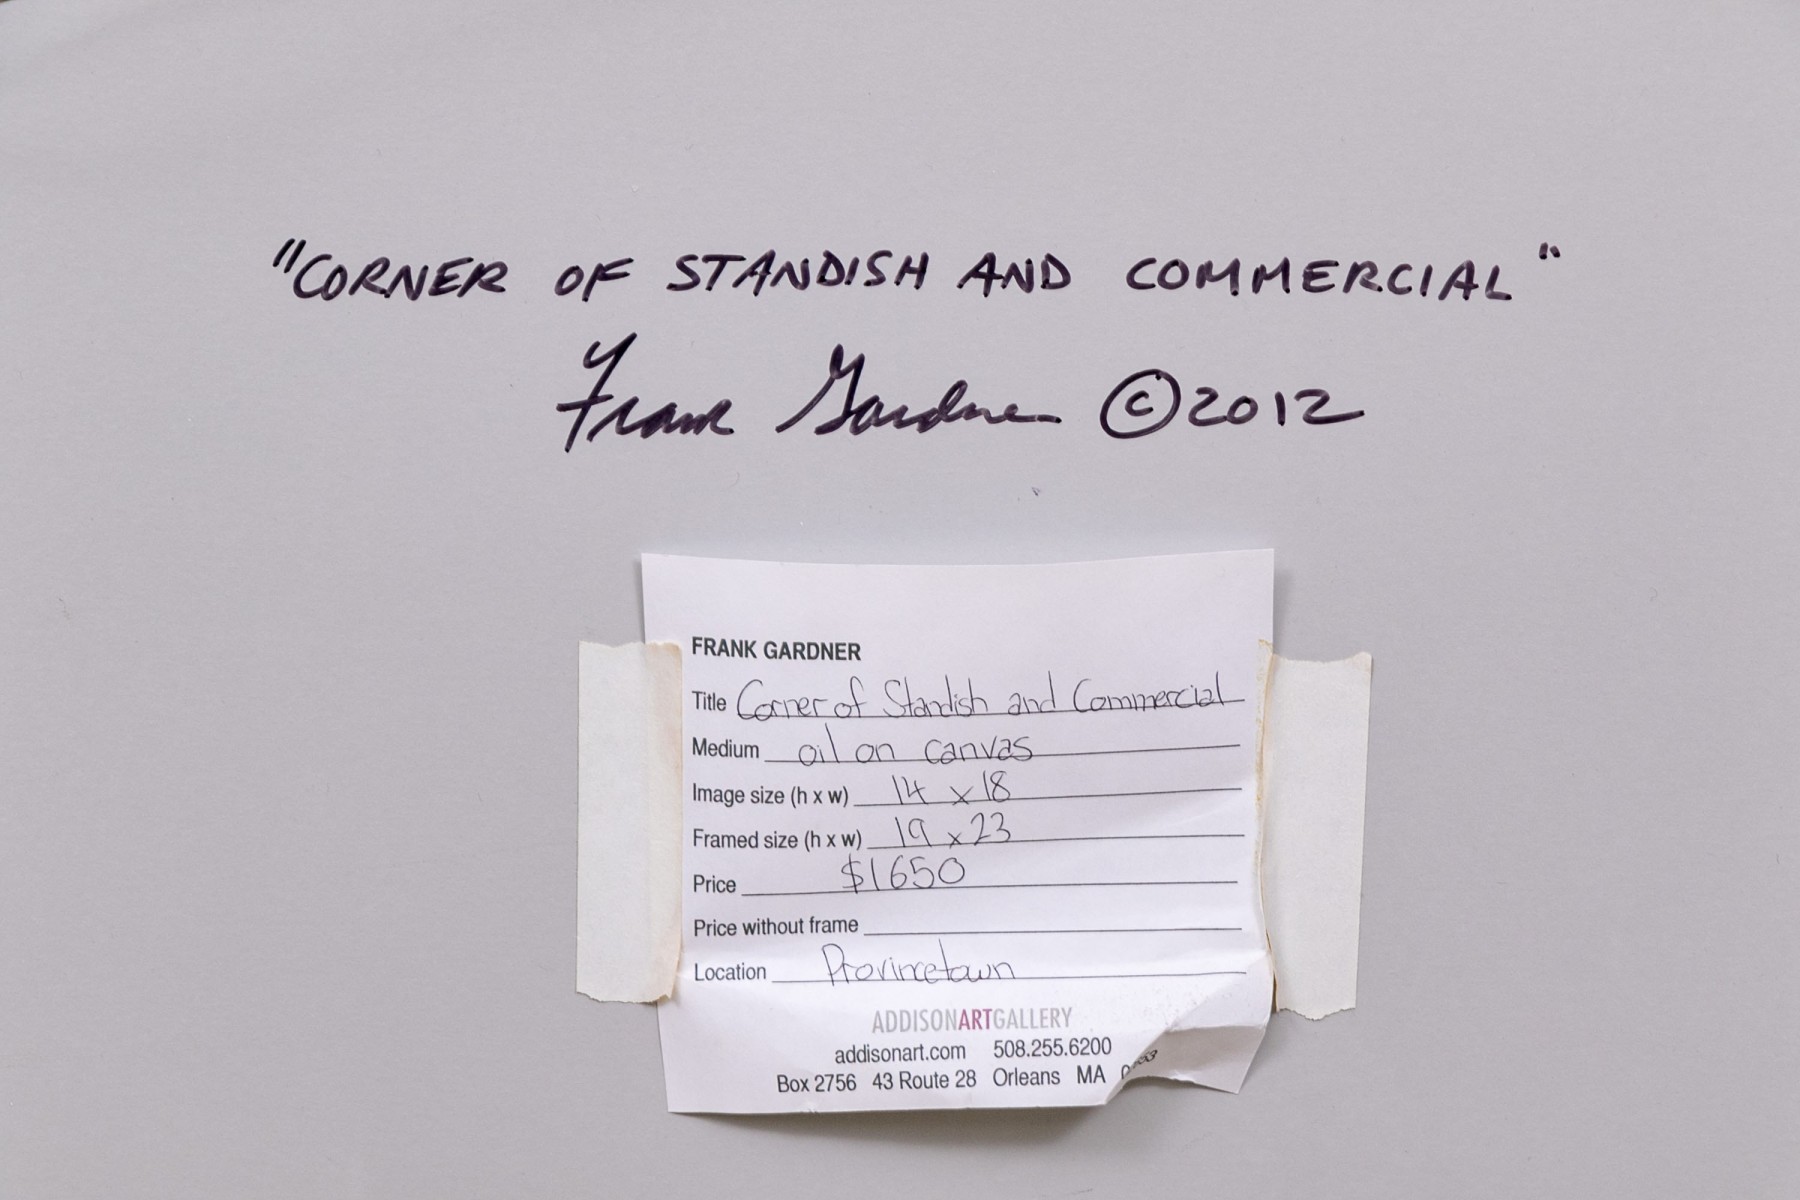 "CORNER OF STANDISH AND COMMERCIAL"
Frank Gardner ©2012
FRANK GARDNER
Title Corner of Standish and Commercial
Medium oil on canvas
Image size (h x w) 14 x 18
Framed size (h x w) 19 x 23
Price $1650
Price without frame
Location Provincetown
ADDISONARTGALLERY
addisonart.com 508.255.6200
Box 2756 43 Route 28 Orleans MA